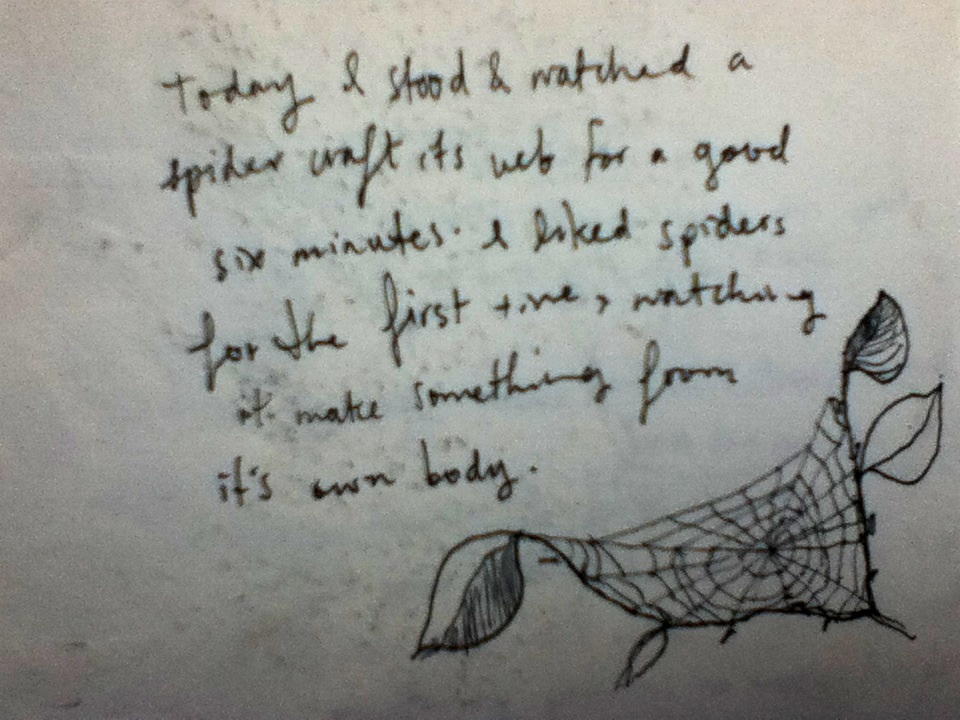 Today I stood & watched a
spider craft its web for a good
six minutes. I liked spiders
for the first time, watching
it make something from
it's own body.